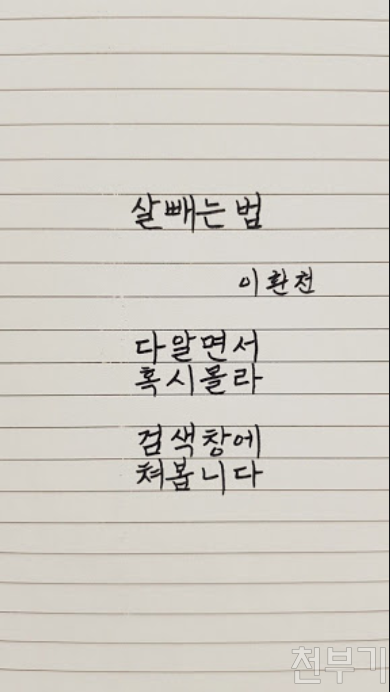 살빼는 법
이환천
다알면서
혹시몰라
검색창에
쳐봅니다
천부기